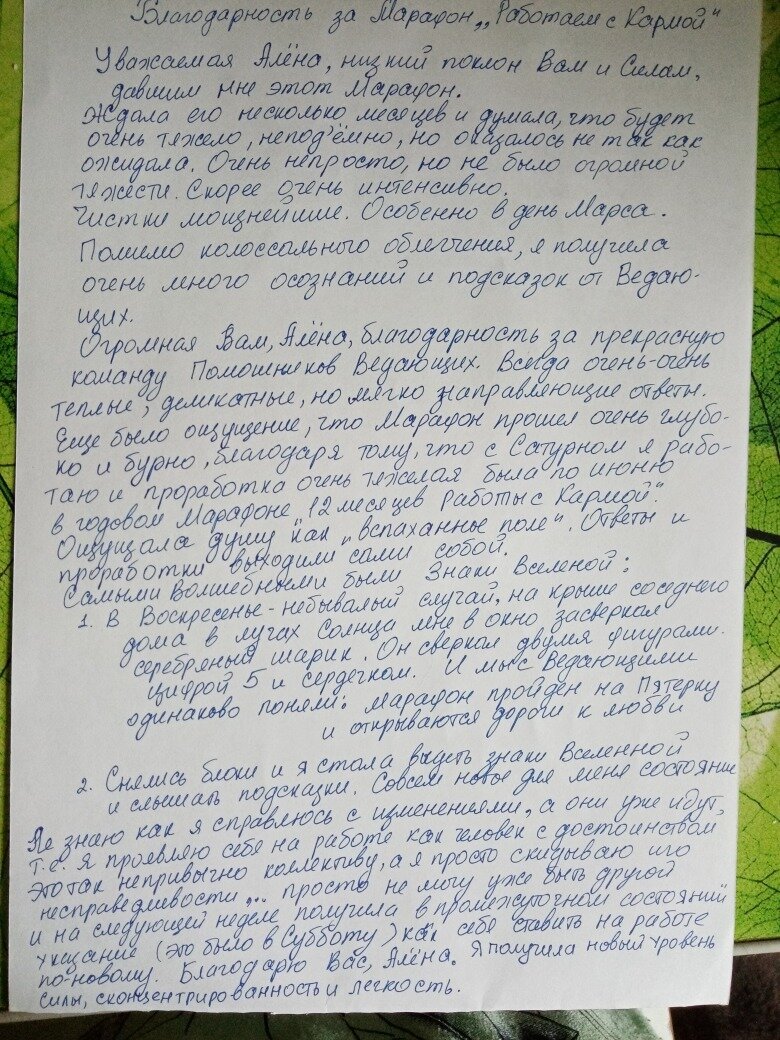 Благодарность за Марафон „Работаем с Кармой"
Уважаемая Алёна, низкий поклон Вам и Силам,
давшим мне этот Марафон.
Ждала его несколько месяцев и думала, что будет
очень тяжело, неподъёмно, но оказалось не так как
ожидала. Очень непросто, но не было огромной
тяжести. Скорее очень интенсивно.
Чистки мощнейшие. Особенно в день Марса.
Помимо колоссального облегчения, я получила
очень много осознаний и подсказок от Ведаю-
щих.
Огромная Вам, Алёна, благодарность за прекрасную
команду Помошников Ведающих. Всегда очень-очень
теплые, деликатные, но мягко направляющие ответы.
Еще было ощущение, что Марафон прошел очень глубо-
ко и бурно, благодаря тому, что с Сатурном я рабо-
таю и проработка очень тяжелая была по июню
в годовом Марафоне „12 месяцев Работы с Кармой".
Ощущала душу как „вспаханное поле". Ответы и
проработки выходили сами собой.
Самыми Волшебными были Знаки Вселеной:
1. В Воскресенье - небывалый случай, на крыше соседнего
дома в лучах Солнца мне в окно засверкал
серебряный шарик. Он сверкал двумя фигурами.
Цифрой 5 и сердечком. И мы с Ведающими
одинаково поняли: Марафон пройден на Пятерку
и открываются дороги к любви
2. Снялись блоки и я стала видеть знаки Вселенной
и слышать подсказки. Совсем новое для меня состояние
Не знаю как я справлюсь с изменениями, а они уже идут,
т.е. я проявляю себя на работе как человек с достоинством
это так непривычно коллективу, а я просто скидываю иго
несправедливости... просто не могу уже быть другой
и на следующей неделе получила в промежуточном состоянии
указание (это было в Субботу) как себя ставить на работе
по-новому. Благодарю Вас, Алёна. Я получила новый уровень
силы, сконцентрированность и легкость.